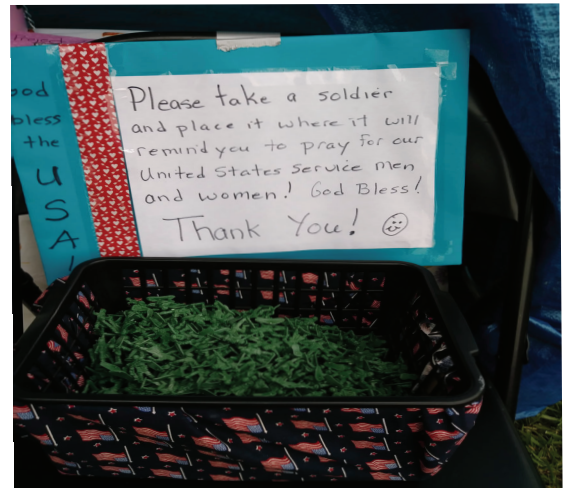 bless
the
U
S
A!
Please take a soldier
and place it where it will
remind you to pray for our
United States service men
and women! God Bless!
Thank You!